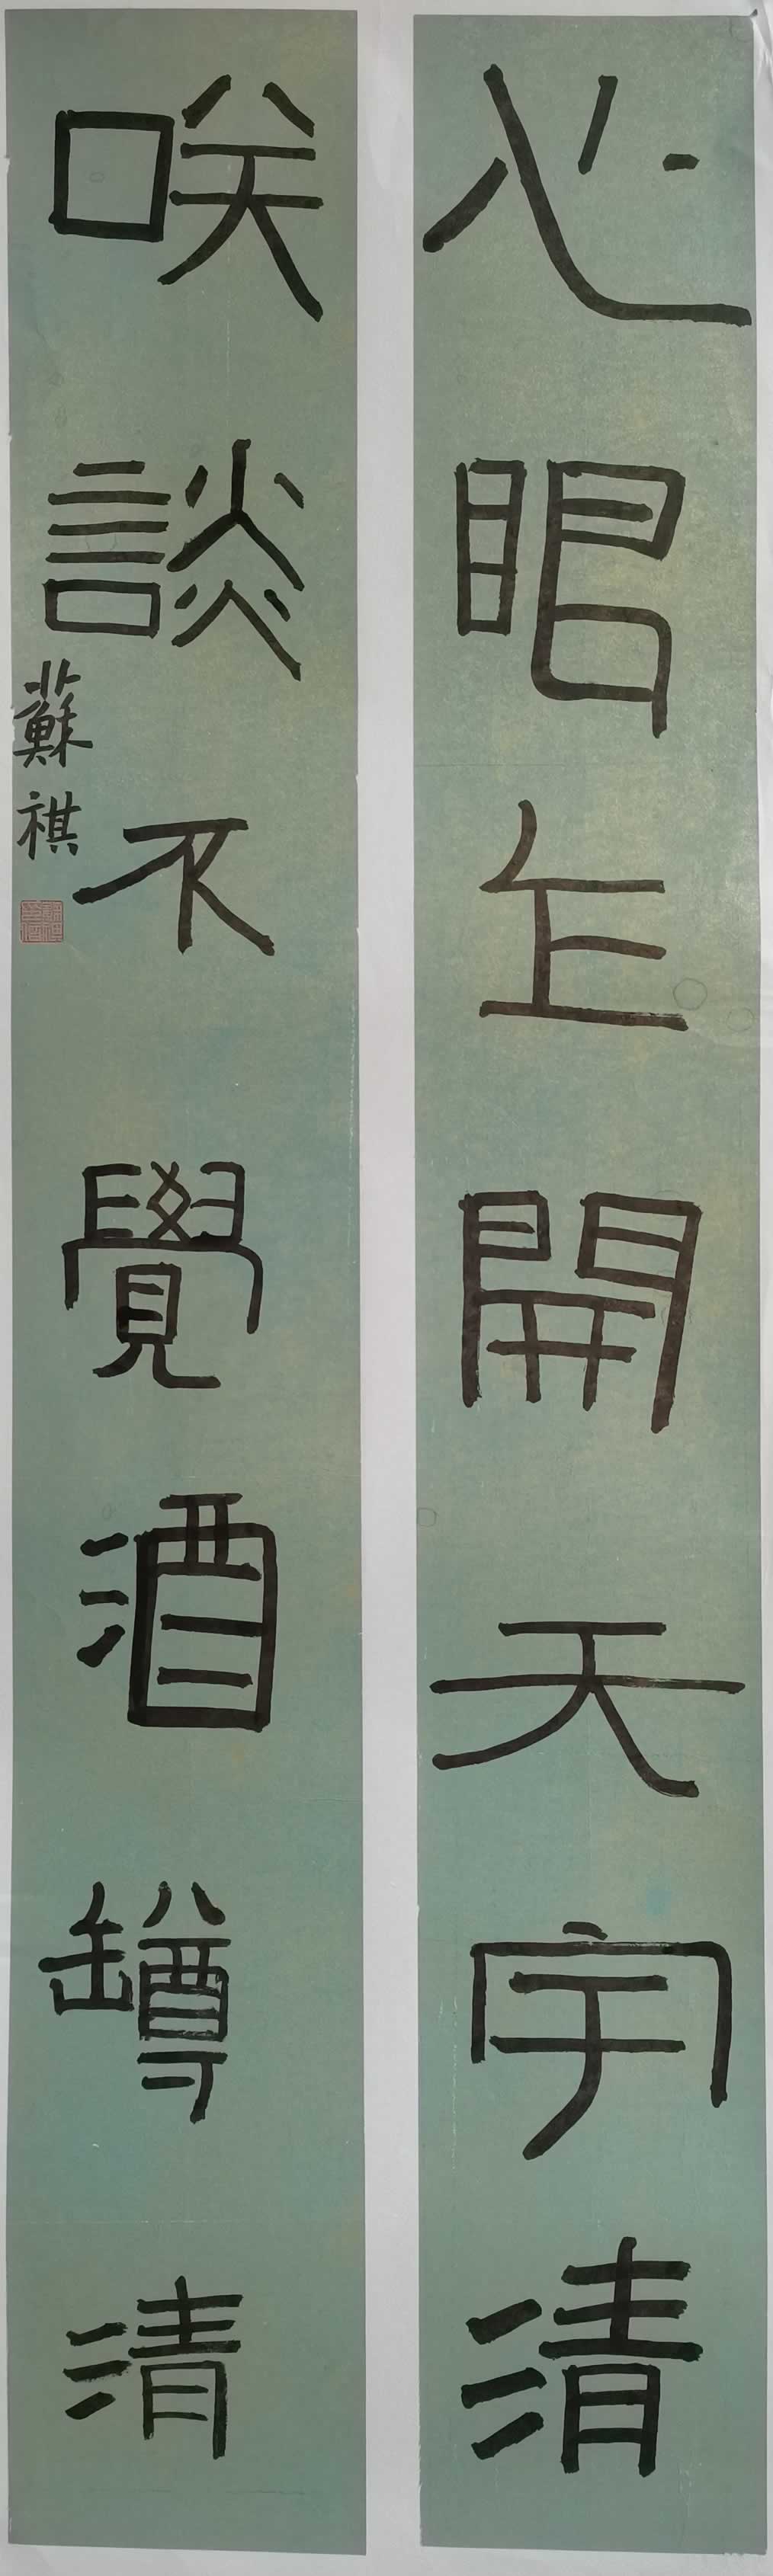 心眼乍開天宇清
咲談不覺酒罇清
蘇祺